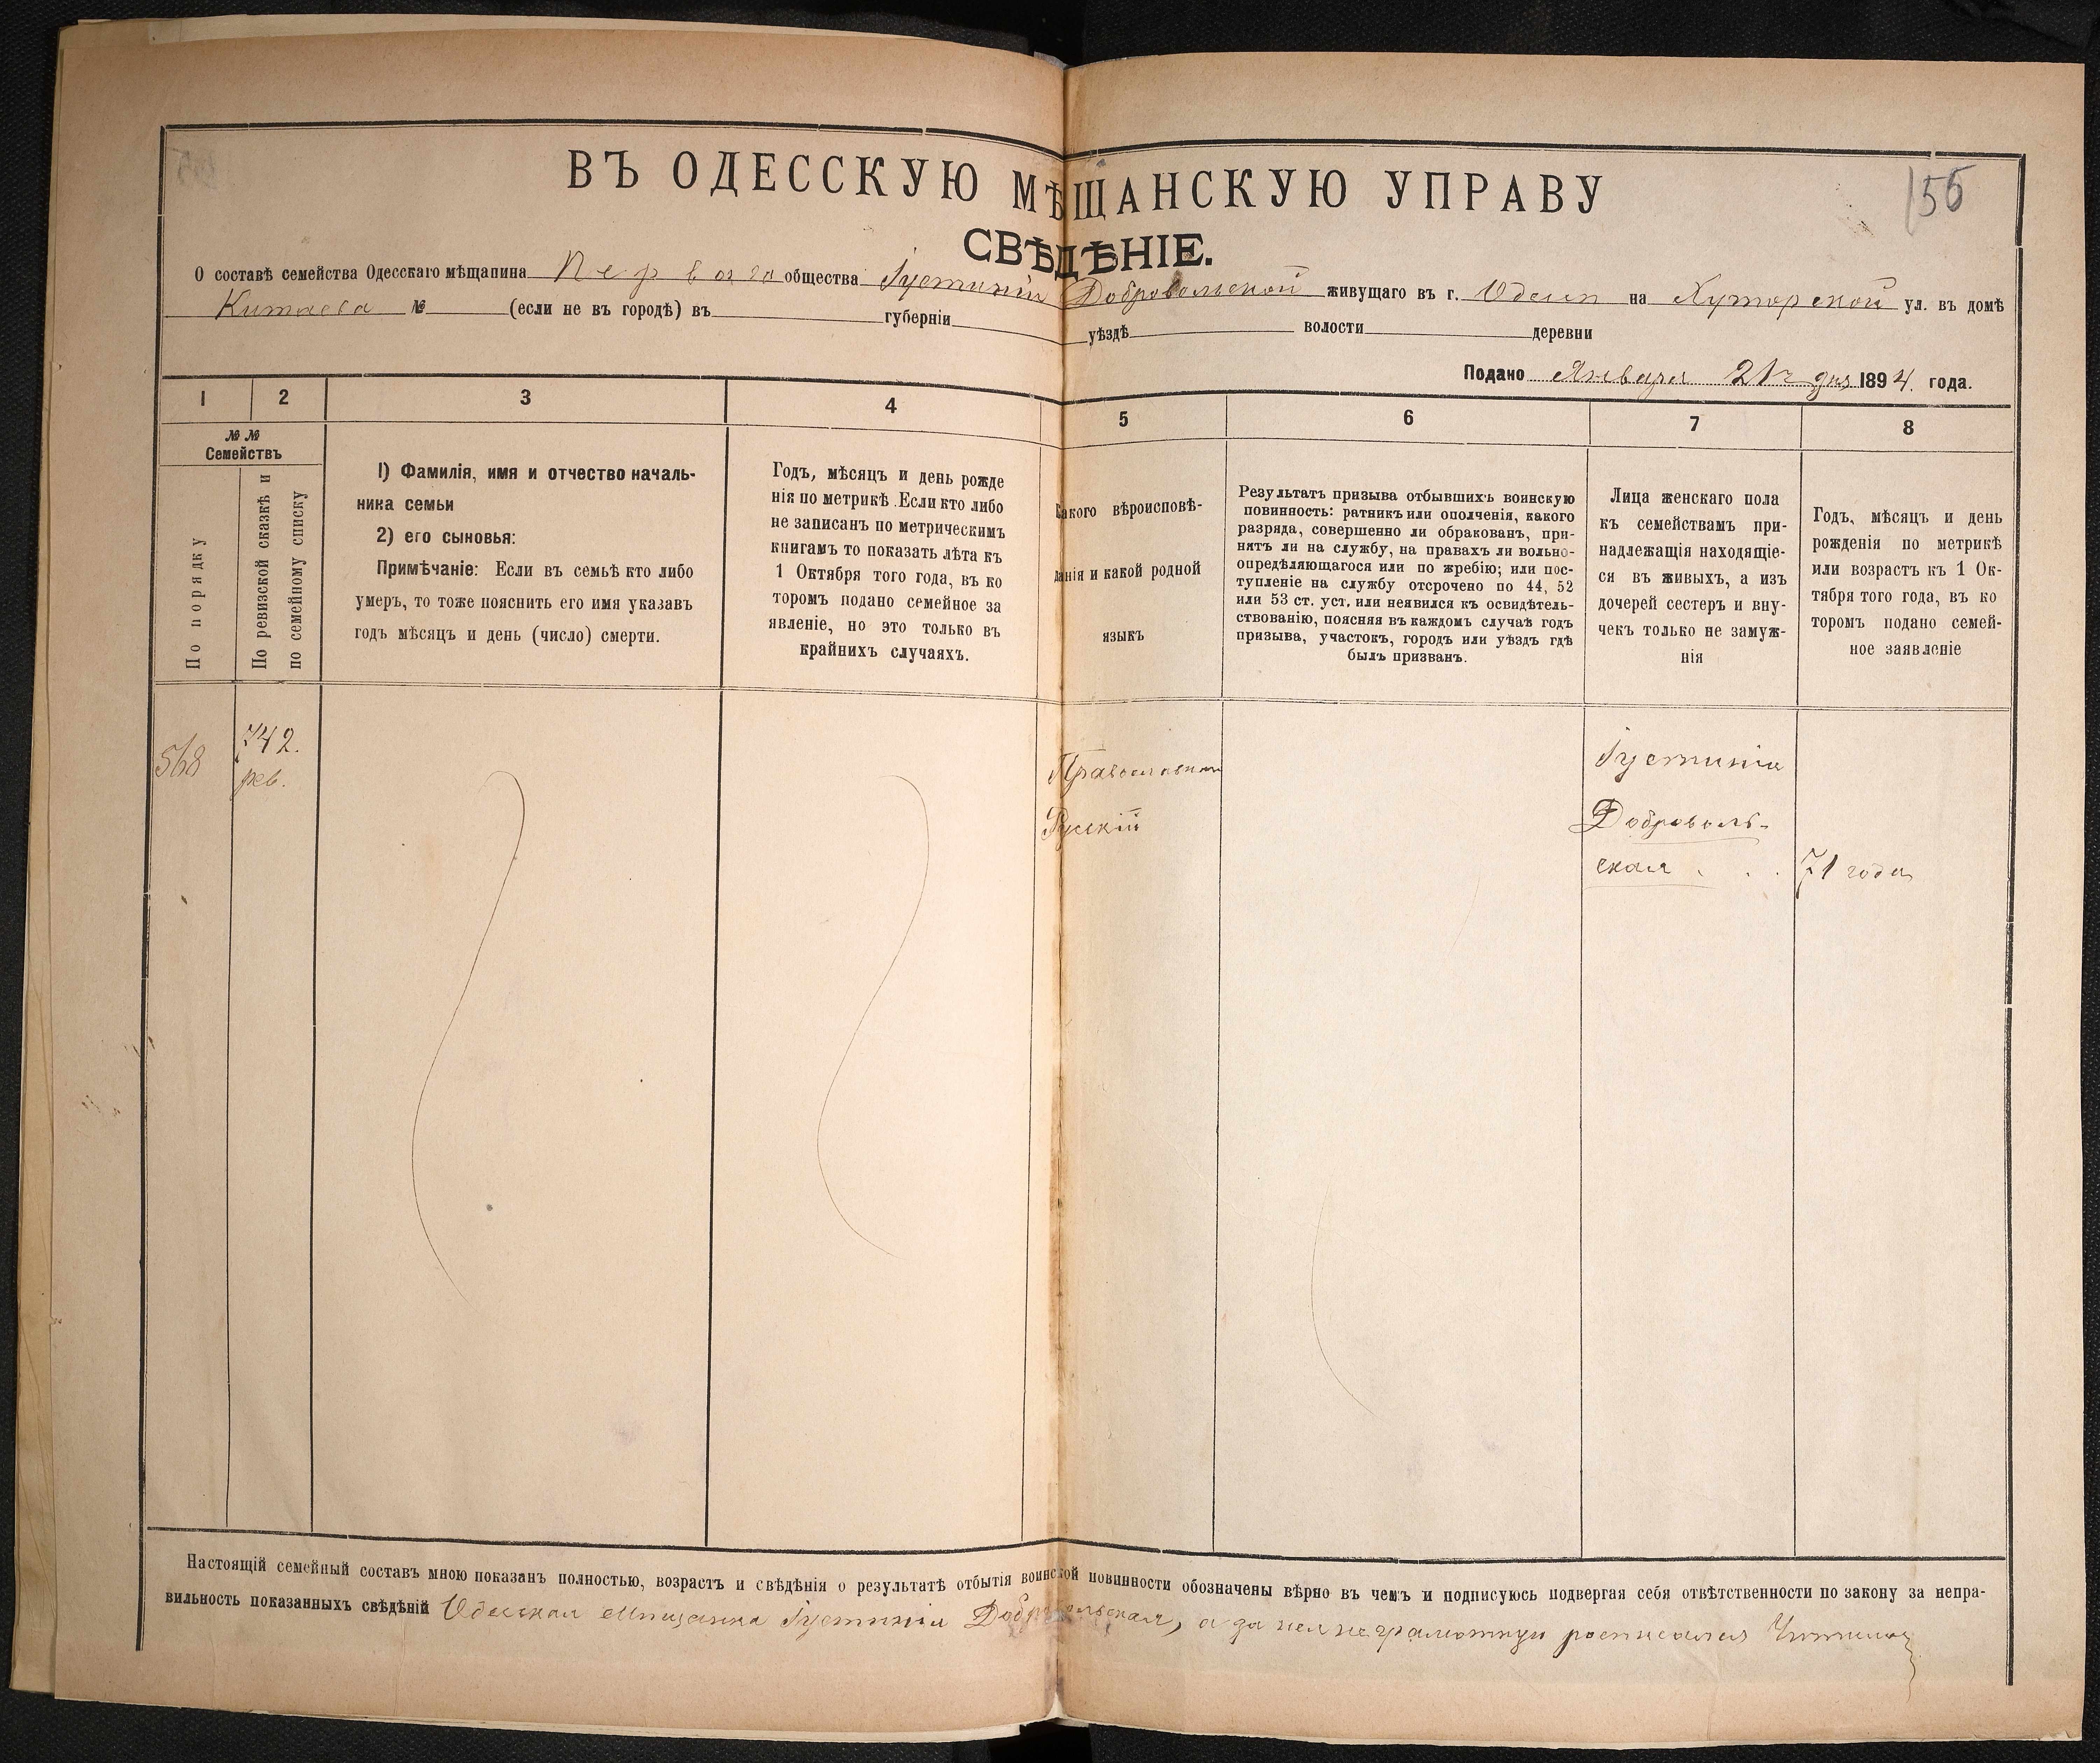 155
ВЪ ОДЕССКУЮ МѢЩАНСКУЮ УПРАВУ
СВѢДѢНІЕ.
О составѣ семейства Одесскаго мѣщанина Перваго общества Іустиніи Добровольской живущаго въ г. Одессѣ на Хуторской ул. въ домѣ
Китаева № (если не въ городѣ) въ губерніи уѣздѣ волости деревни
Подано Января 21 дня 1894. года.
1 2 3 4 5 6 7 8
№ №
Семействъ
По порядку
По ревизской сказкѣ и
по семейному списку
1) Фамилія, имя и отчество началь-
ника семьи
2) его сыновья:
Примѣчаніе: Если въ семьѣ кто либо
умеръ, то тоже пояснить его имя указавъ
годъ мѣсяцъ и день (число) смерти.
Годъ, мѣсяцъ и день рожде
нія по метрикѣ. Если кто либо
не записанъ по метрическимъ
книгамъ то показать лѣта къ
1 Октября того года, въ ко
торомъ подано семейное за
явленіе, но это только въ
крайнихъ случаяхъ.
Какого вѣроисповѣ-
данія и какой родной
языкъ
Результатъ призыва отбывшихъ воинскую
повинность: ратникъ или ополченія, какого
разряда, совершенно ли обракованъ, при-
нятъ ли на службу, на правахъ ли вольно-
опредѣляющагося или по жребію; или пос-
тупленіе на службу отсрочено по 44, 52
или 53 ст. уст. или неявился къ освидѣтель-
ствованію, поясняя въ каждомъ случаѣ годъ
призыва, участокъ, городъ или уѣздъ гдѣ
былъ призванъ.
Лица женскаго пола
къ семействамъ при-
надлежащія находящіе-
ся въ живыхъ, а изъ
дочерей сестеръ и вну-
чекъ только не замуж-
нія
Годъ, мѣсяцъ и день
рожденія по метрикѣ
или возрастъ къ 1 Ок-
тября того года, въ ко
торомъ подано семей-
ное заявленіе
568
742.
рев.
Православная
Русскій
Іустинія
Доброволь-
ская . . .
71 года
Настоящій семейный составъ мною показанъ полностью, возрастъ и свѣдѣнія о результатѣ отбытія воинской повинности обозначены вѣрно въ чемъ и подписуюсь подвергая себя отвѣтственности по закону за непра-
вильность показанныхъ свѣдѣній Одесская мѣщанка Іустинія Добровольская, а за нея неграмотную росписался